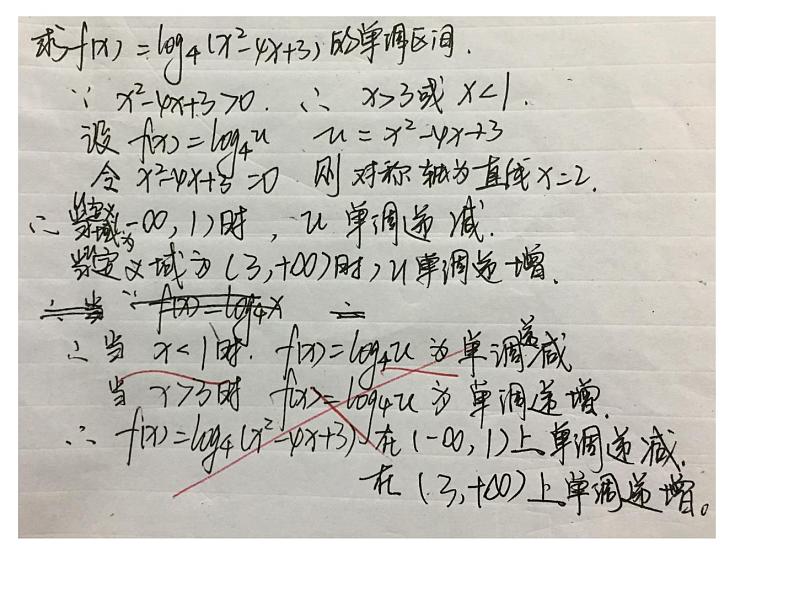 求f(x)=log₄(x²-4x+3)的单调区间.
∵ x²-4x+3>0. ∴ x>3或x<1.
设 f(x)=log₄u u=x²-4x+3
令 x²-4x+3=0 则对称轴为直线x=2.
∴ 当定义域为(-∞,1)时, u单调递减.
当定义域为(3,+∞)时, u单调递增.
∴当 ∵ f(x)=log₄x ∴
∴当 x<1时. f(x)=log₄u为单调递减
当 x>3时 f(x)=log₄u为单调递增.
∴ f(x)=log₄(x²-4x+3)在(-∞,1)上单调递减.
在(3,+∞)上单调递增。